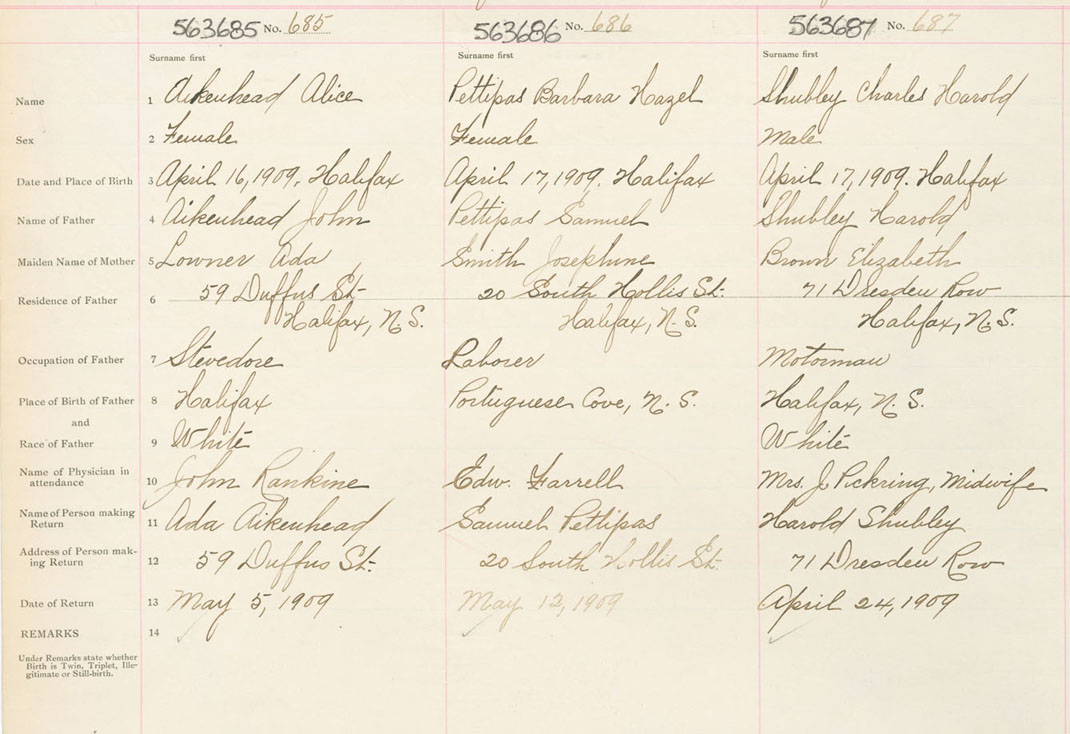 563685 No. 685 563686 No. 686 563687 No. 687
Surname first Surname first Surname first
Name 1 Aikenhead Alice Pettipas Barbara Hazel Shubley Charles Harold
Sex 2 Female Female Male
Date and Place of Birth 3 April 16, 1909. Halifax April 17, 1909. Halifax April 17, 1909. Halifax
Name of Father 4 Aikenhead John Pettipas Samuel Shubley Harold
Maiden Name of Mother 5 Lowner Ada Smith Josephine Brown Elizabeth
Residence of Father 6 59 Duffus St. 20 South Hollis St. 71 Dresden Row
Halifax, N.S. Halifax, N.S. Halifax, N.S.
Occupation of Father 7 Stevedore Laborer Motorman
Place of Birth of Father 8 Halifax Portuguese Cove, N.S. Halifax, N.S.
and
Race of Father 9 White White
Name of Physician in
attendance 10 John Rankine Edw. Farrell Mrs. J Pickring, Midwife
Name of Person making
Return 11 Ada Aikenhead Samuel Pettipas Harold Shubley
Address of Person mak-
ing Return 12 59 Duffus St. 20 South Hollis St. 71 Dresden Row
Date of Return 13 May 5, 1909 May 12, 1909 April 24, 1909
REMARKS 14
Under Remarks state whether
Birth is Twin, Triplet, Ille-
gitimate or Still-birth.